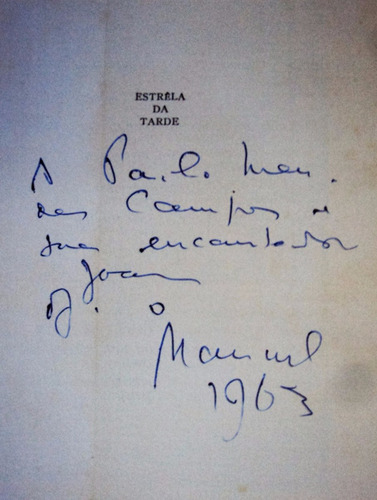 ESTRÊLA
DA
TARDE
A Paulo Men-
des Campos e
sua encantadora
Joan
O
Manuel
1963